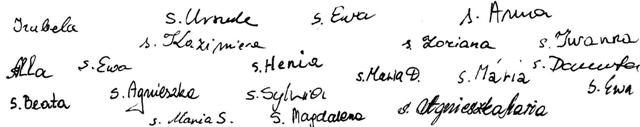 Izabela s. Urszula s. Ewa s. Anna
s. Kazimiera s. Zoriana s. Iwanna
Alla s. Ewa s. Henia s. Maria D. s. Mária s. Danuta
s. Beata s. Agnieszka s. Sylwia s. Agnieszka Maria s. Ewa
s. Maria S. s. Magdalena